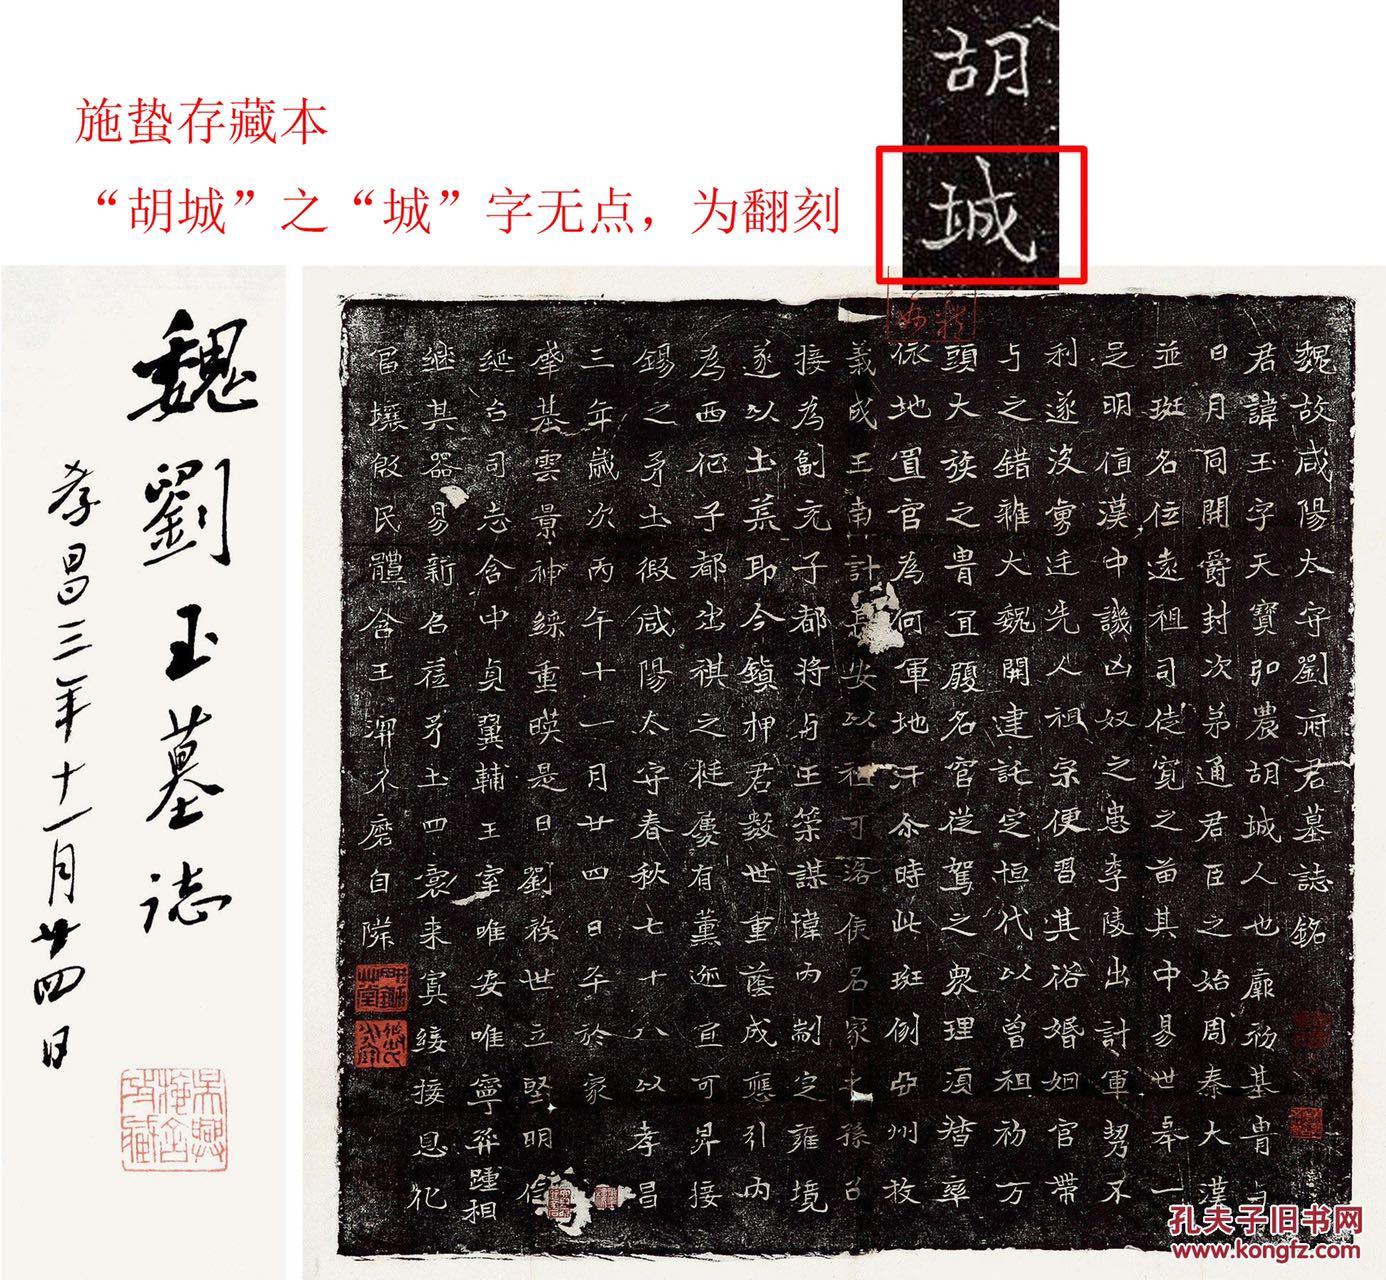 施蛰存藏本
“胡城”之“城”字无点，为翻刻
胡城
魏故咸陽太守劉府君墓誌銘
君諱玉字天寶弘農胡城人也靡初基胄与
日月同開爵封次弟通君臣之始周秦大漢
並班名位遠祖司徒寬之苗其中易世率一
足明值漢中譏凶奴之患李陵出討軍勢不
利遂没廷先人祖宗便習其俗婚姻官帶
与之錯雜大魏開建託定恒代以曾祖初万
頭大族之胄宜履名官從駕之衆理須督率
依地置官為何軍地汗尒時此班例亞州牧
義成王南計長安以祖可洛侯名家之孫召
接為副充子都將与王築謀偉內制定雍境
遂以土耶今鎮柙君數世重蔭成應引內
為西征子都出祺之挺慶有薰迹宜可昇接
錫之矛土假咸陽太守春秋七十八以孝昌
三年歲次丙午十一月廿四日卒於家
肇基雲景神綵重暎是日劉族世立堅明
綖台司志含中貞翼輔王室唯安唯寧踵相
継其器易新名莅矛土四来寘綏接恩化
留壤啟民體含王不磨自隣
魏劉玉墓誌
孝昌三年十一月廿四日
吳興施舍攷藏
孔夫子旧书网
www.kongfz.com